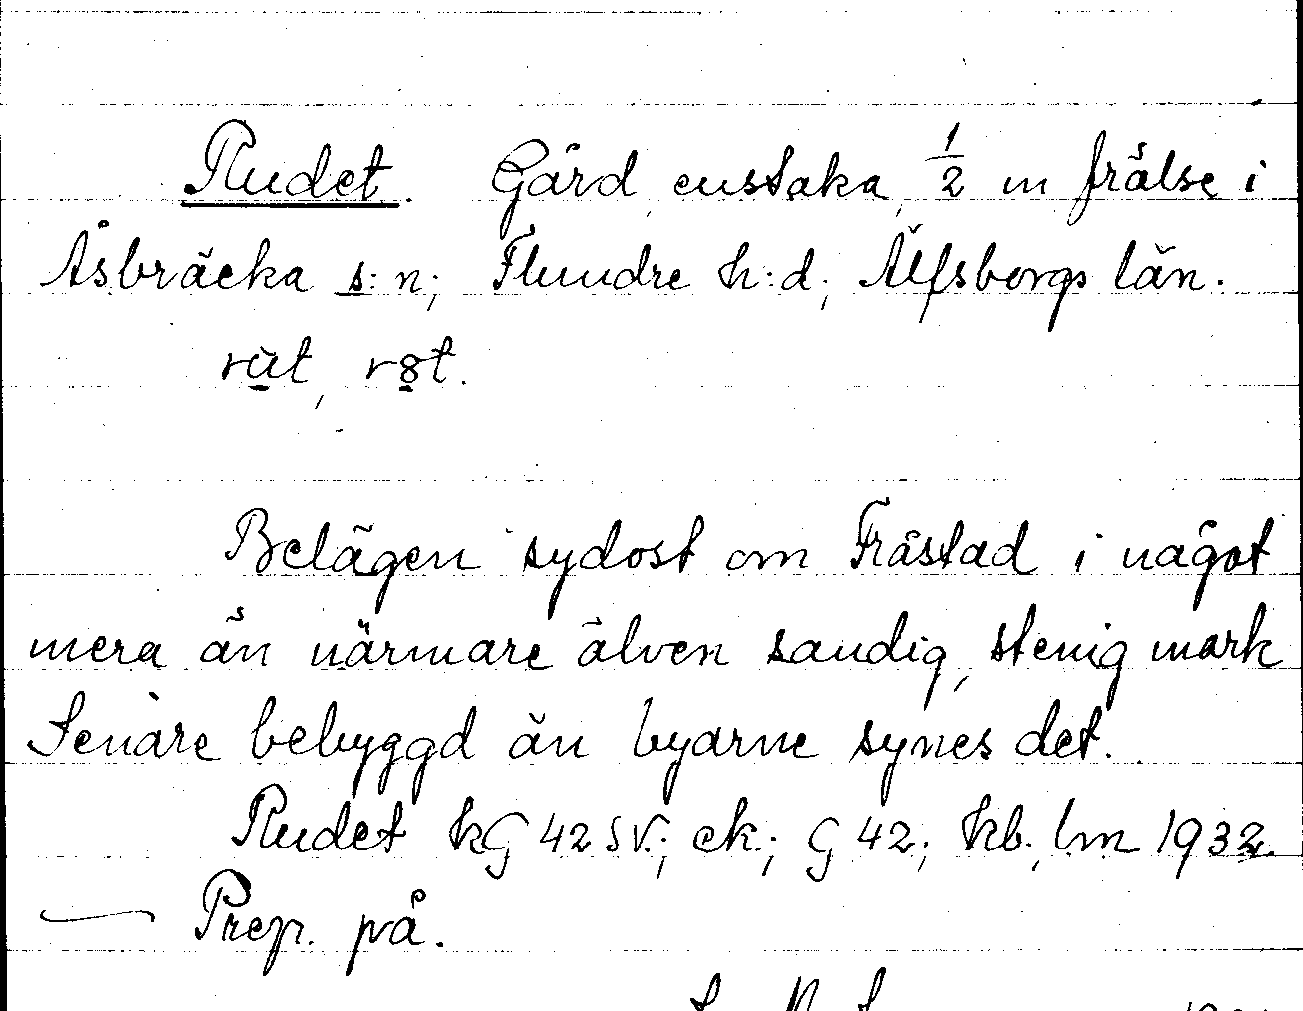 Rudet. Gård, enstaka, 1/2 m frälse i
Åsbräcka s:n; Flundre h:d; Älfsborgs län.
rut, r8t.
Belägen sydost om Fråstad i något
mera än närmare älven sandig, stenig mark
Senare bebyggd än byarne synes det.
Rudet kG 42 SV.; ek; G 42; kb. lm 1932.
— Prep. på.